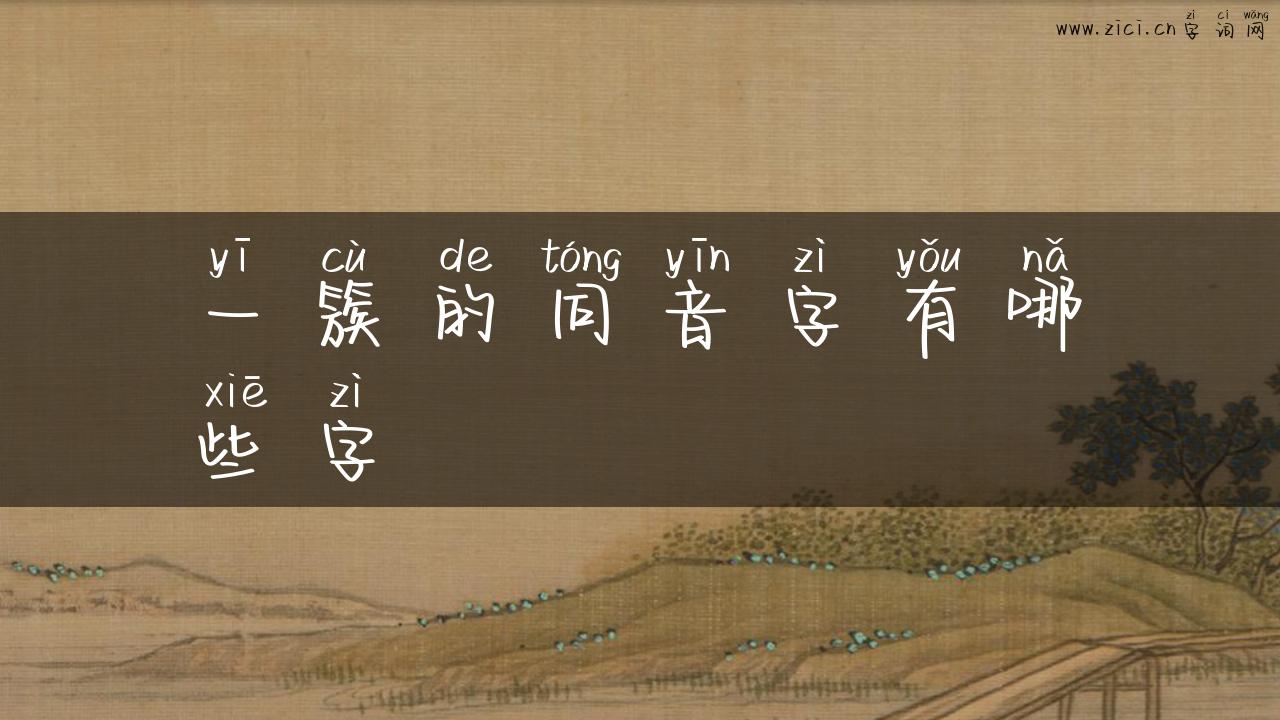 zì cí wǎng
www.zici.cn 字词网
yī cù de tóng yīn zì yǒu nǎ
一簇的同音字有哪
xiē zì
些字